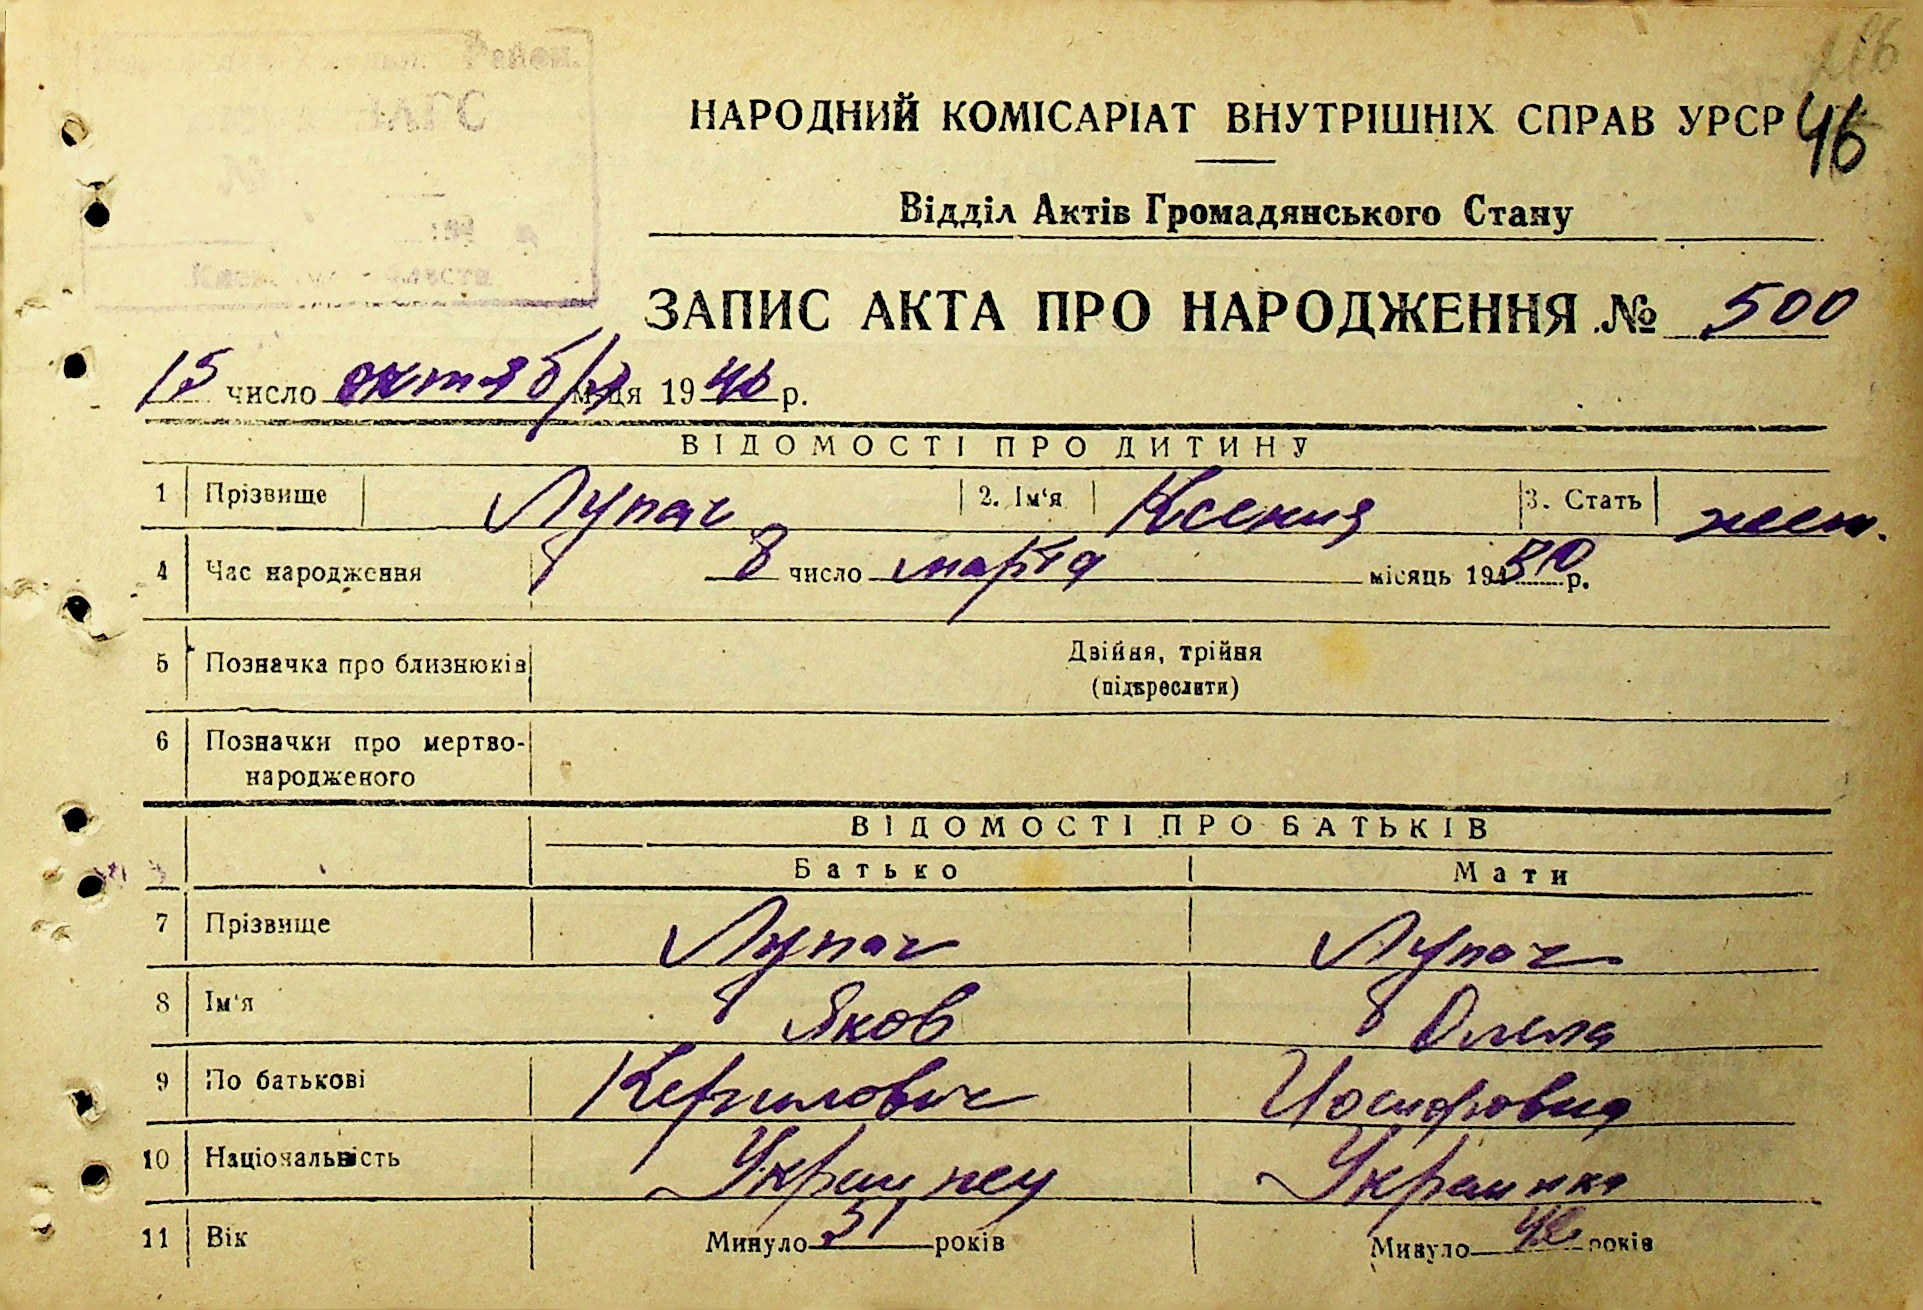 Район.
ЗАГС
46
НАРОДНИЙ КОМІСАРІАТ ВНУТРІШНІХ СПРАВ УРСР
Відділ Актів Громадянського Стану
ЗАПИС АКТА ПРО НАРОДЖЕННЯ № 500
15 число октября м-ця 1946 р.
ВІДОМОСТІ ПРО ДИТИНУ
1 Прізвище Лупач 2. Ім'я Ксения 3. Стать жен.
4 Час народження 8 число марта місяць 1930 р.
5 Позначка про близнюків Двійня, трійня
(підкреслити)
6 Позначки про мертво-
народженого
ВІДОМОСТІ ПРО БАТЬКІВ
Батько Мати
7 Прізвище Лупач Лупач
8 Ім'я Яков Олена
9 По батькові Керилович Йосиповна
10 Національність Украинец Украинка
11 Вік Минуло 51 років Минуло років